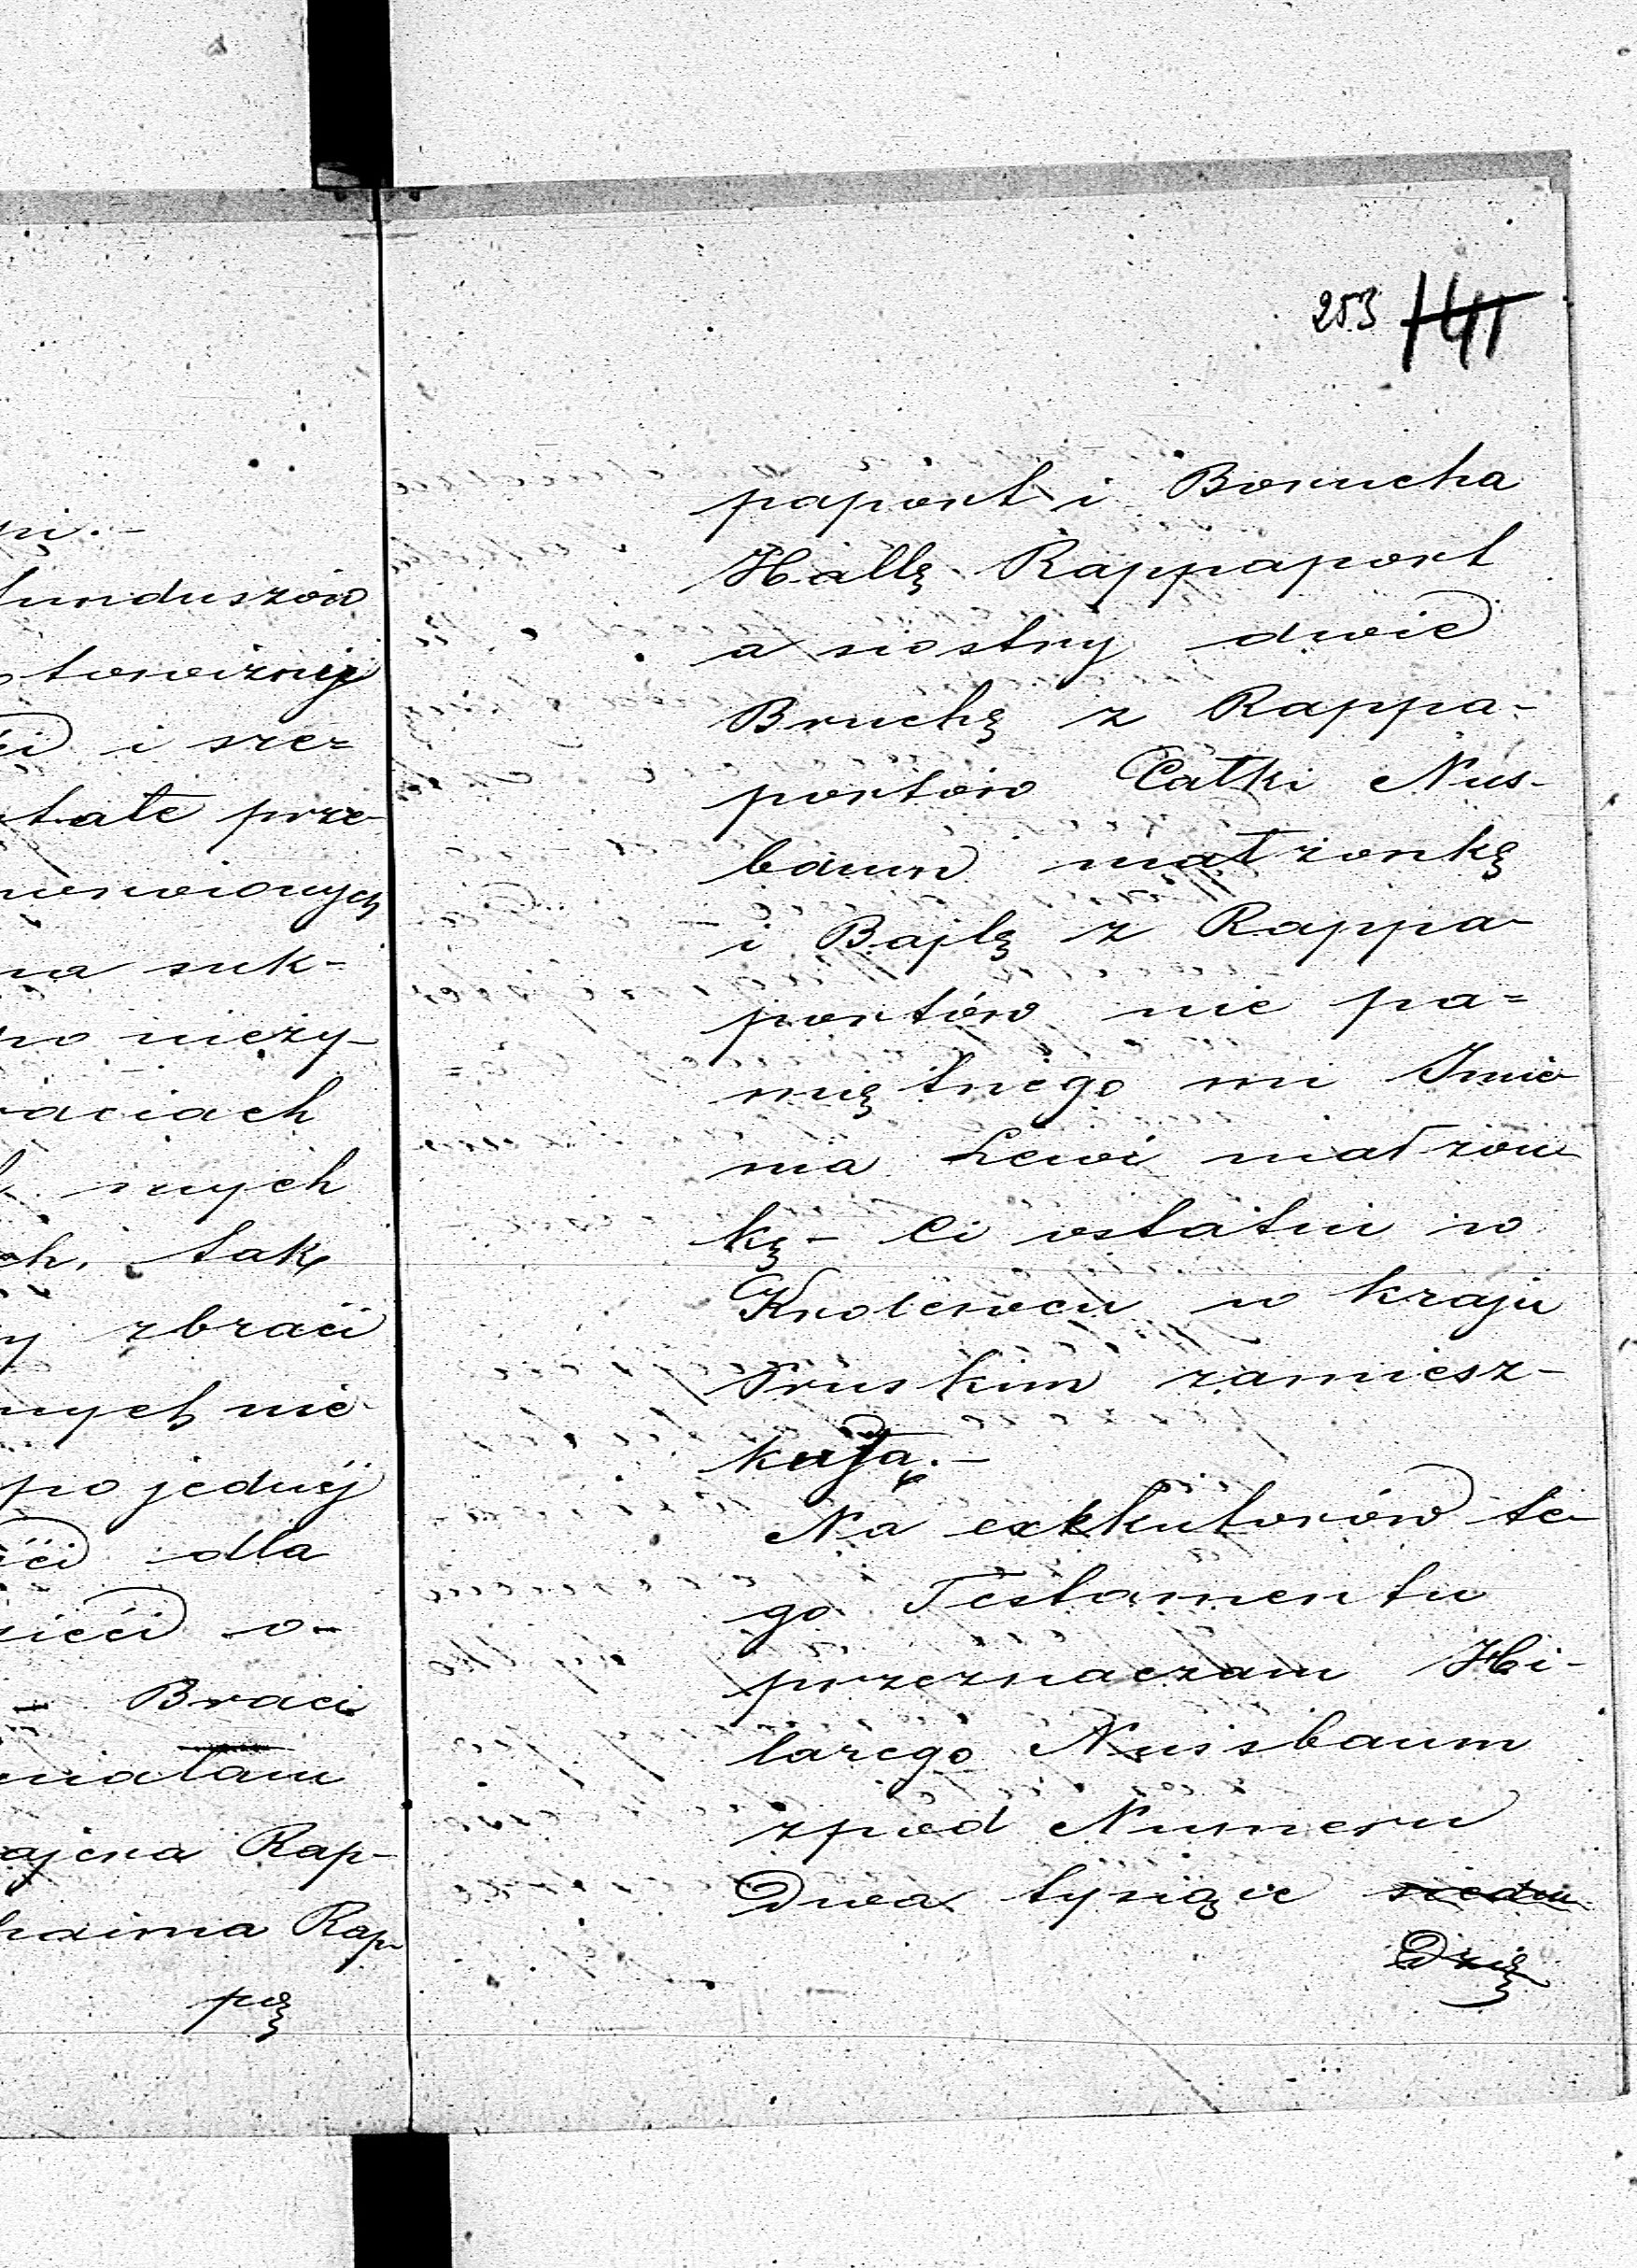 pi.-
funduszów
towizny
i sze=
tałe prze-
na suk-
no nieży-
raciach
innych
ch, tak
zbraci
nych nie
po jednéj
dla
o-
Braci
miałam
ajera Rap-
haima Rap-
po
253 141
paport i Borucha
Hallę Rappaport
a siostry dwie
Bruchę z Rappa-
portów Całki Nus-
baum małżonkę
i Bajlę z Rappa-
portów nie pa=
miętnego mi Imie-
nia Lewi małżon-
kę - Ci ostatni w
Krolewcu w kraju
Pruskim zamiesz-
kują.-
Na exekutorów te-
go Testamentu
przeznaczam Hi-
larego Nussbaum
zpod Numeru
Dwa tysiące siedm